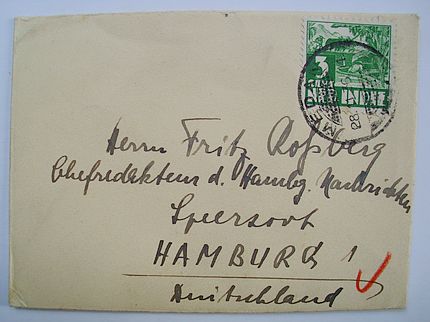 3
NED. INDIË
MEDAN
28.
Herrn Fritz Roßberg
Chefredakteur d. Hambg. Nachrichten
Speersort
HAMBURG 1
Deutschland